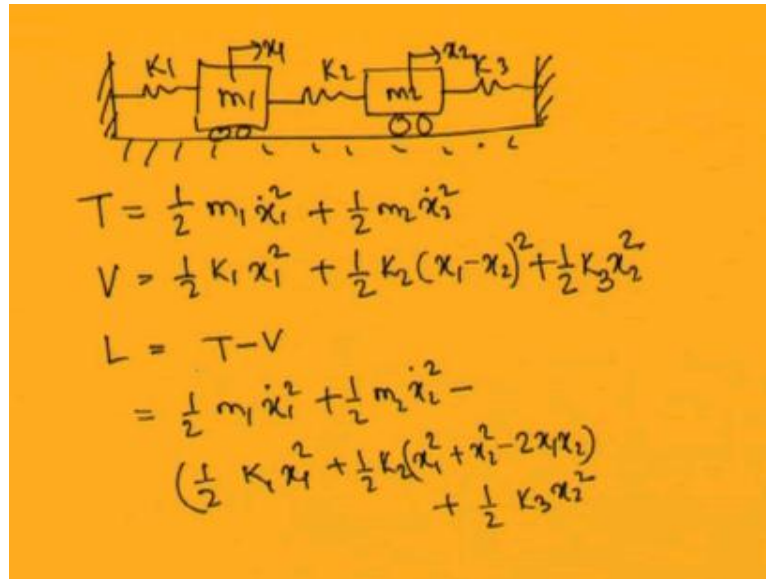 K1 x1 K2 x2 K3
m1 m2
T = 1/2 m₁ ẋ₁² + 1/2 m₂ ẋ₂²
V = 1/2 K₁ x₁² + 1/2 K₂ (x₁-x₂)² + 1/2 K₃ x₂²
L = T-V
= 1/2 m₁ ẋ₁² + 1/2 m₂ ẋ₂² -
(1/2 K₁ x₁² + 1/2 K₂(x₁² + x₂² - 2x₁x₂)
+ 1/2 K₃ x₂²